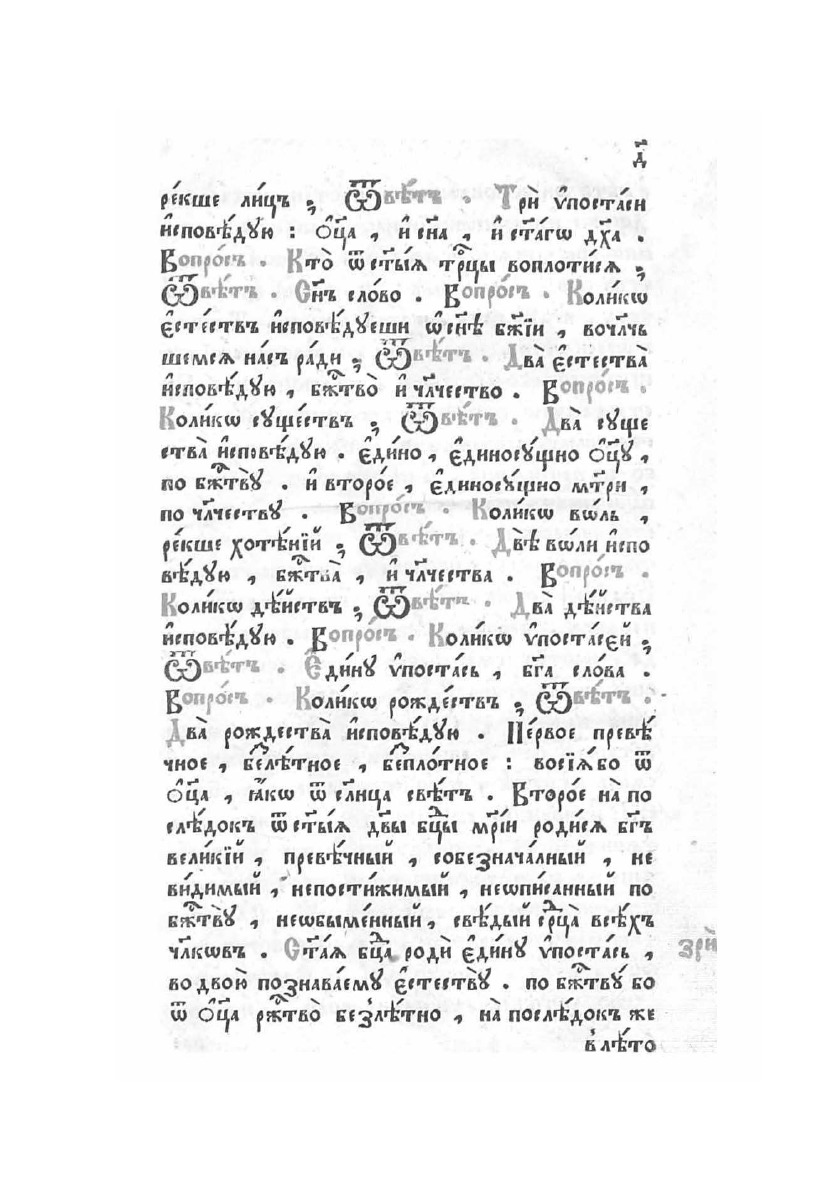 д҃
ре́кше ли́цъ ; Ѿвѣ́тъ . Трѝ ѵ҆поста́си
и҆сповѣ́дꙋю : ѻ҆ц҃а , и҆ сн҃а , и҆ ст҃а́гѡ дх҃а .
Вопро́съ . Кто̀ ѿ ст҃ы́ѧ трⷪ҇цы воплоти́сѧ ;
Ѿвѣ́тъ . Сн҃ъ сло́во . Вопро́съ . Коли́кѡ
є҆сте́ствъ и҆сповѣ́дꙋеши ѡ҆ сн҃ѣ бж҃їи , вочл҃чь
шемсѧ на́съ ра́ди ; Ѿвѣ́тъ . Два̀ є҆стества̀
и҆сповѣ́дꙋю , бжⷭ҇тво̀ и҆ чл҃чество . Вопро́съ .
Коли́кѡ сꙋще́ствъ ; Ѿвѣ́тъ . Два̀ сꙋще
ства̀ и҆сповѣ́дꙋю . є҆ди́но , є҆диносꙋ́щно ѻ҆ц҃ꙋ̀ ,
по бжⷭ҇твꙋ̀ . и҆ второ́е , є҆диносꙋ́щно мт҃ри ,
по чл҃честву . Вопро́съ . Коли́кѡ во́ль ,
ре́кше хотѣ́нїй ; Ѿвѣ́тъ . Двѣ̀ во́ли и҆спо
вѣ́дꙋю , бжⷭ҇тва̀ , и҆ чл҃чества . Вопро́съ .
Коли́кѡ дѣ́йствъ ; Ѿвѣ́тъ . Два̀ дѣ́йства
и҆сповѣ́дꙋю . Вопро́съ . Коли́кѡ ѵ҆поста́сей ;
Ѿвѣ́тъ . Є҆ди́нꙋ ѵ҆поста́сь , бг҃а сло́ва .
Вопро́съ . Коли́кѡ рожде́ствъ ; Ѿвѣ́тъ .
Два̀ рождества̀ и҆сповѣ́дꙋю . Пе́рвое превѣ́
чное , безлѣ́тное , безпло́тное : восїѧ́бо ѿ
ѻ҆ц҃а , ꙗ҆́кѡ ѿ сл҃нца свѣ́тъ . Второ́е на̀ по
слѣ́докъ ѿ ст҃ы́ѧ дв҃ы бцⷣы мр҃і́и роди́сѧ бг҃ъ
вели́кїй , превѣ́чный , собезнача́лный , не
ви́димый , непости́жимый , неѡпи́санный по
бжⷭ҇твꙋ̀ , неѡбыме́нный , свѣ́дый срⷣца̀ всѣ́хъ
чл҃кѡвъ . Ст҃а́ѧ бцⷣа родѝ є҆ди́нꙋ ѵ҆поста́сь ,
во двою̀ познава́емꙋ є҆стествꙋ̀ . по бжⷭ҇твꙋ́ бо
ѿ ѻ҆ц҃а ржⷭ҇тво̀ безлѣ́тно , на̀ послѣ́докъ же
в̾ лѣ́то
зрѝ